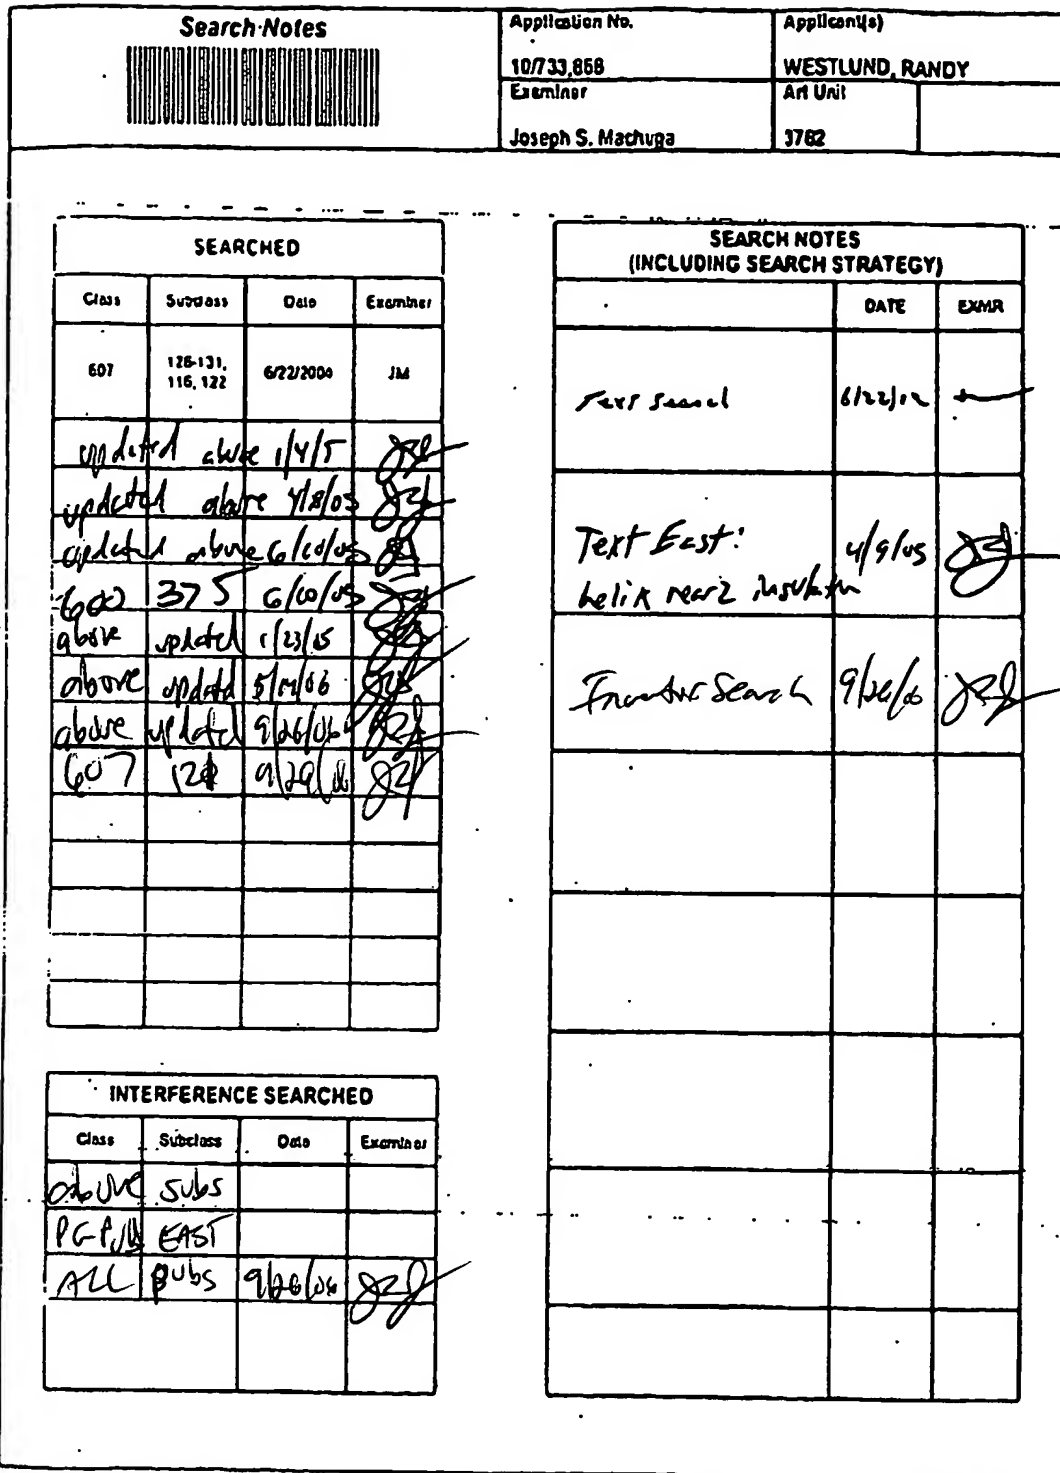 Search Notes
Application No.
Applicant(s)
10/733,858
WESTLUND, RANDY
Examiner
Art Unit
Joseph S. Machuga
3762
SEARCHED
Class Subclass Date Examiner
607 126-131, 6/22/2004 JM
116, 122
updated above 1/4/5
updated above 4/8/05
updated above 6/10/05
600 375 6/10/05
above updated 1/23/05
above updated
above updated 9/26/06
607
INTERFERENCE SEARCHED
Class Subclass Date Examiner
above subs
PG-Pub EAST
ALL subs 9/26/06
SEARCH NOTES
(INCLUDING SEARCH STRATEGY)
DATE EXMR
Text Search
Text East: 4/9/05
helix near2 insulation
Inventor Search 9/26/06